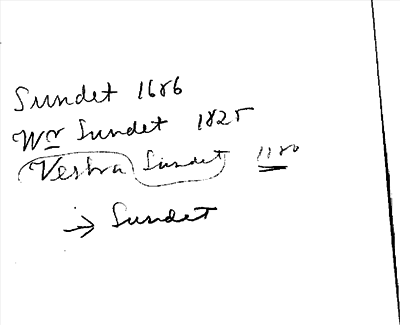 Sundet 1686
Wᵐ Sundet 1825
Vestra Sundet 1180
→ Sundet